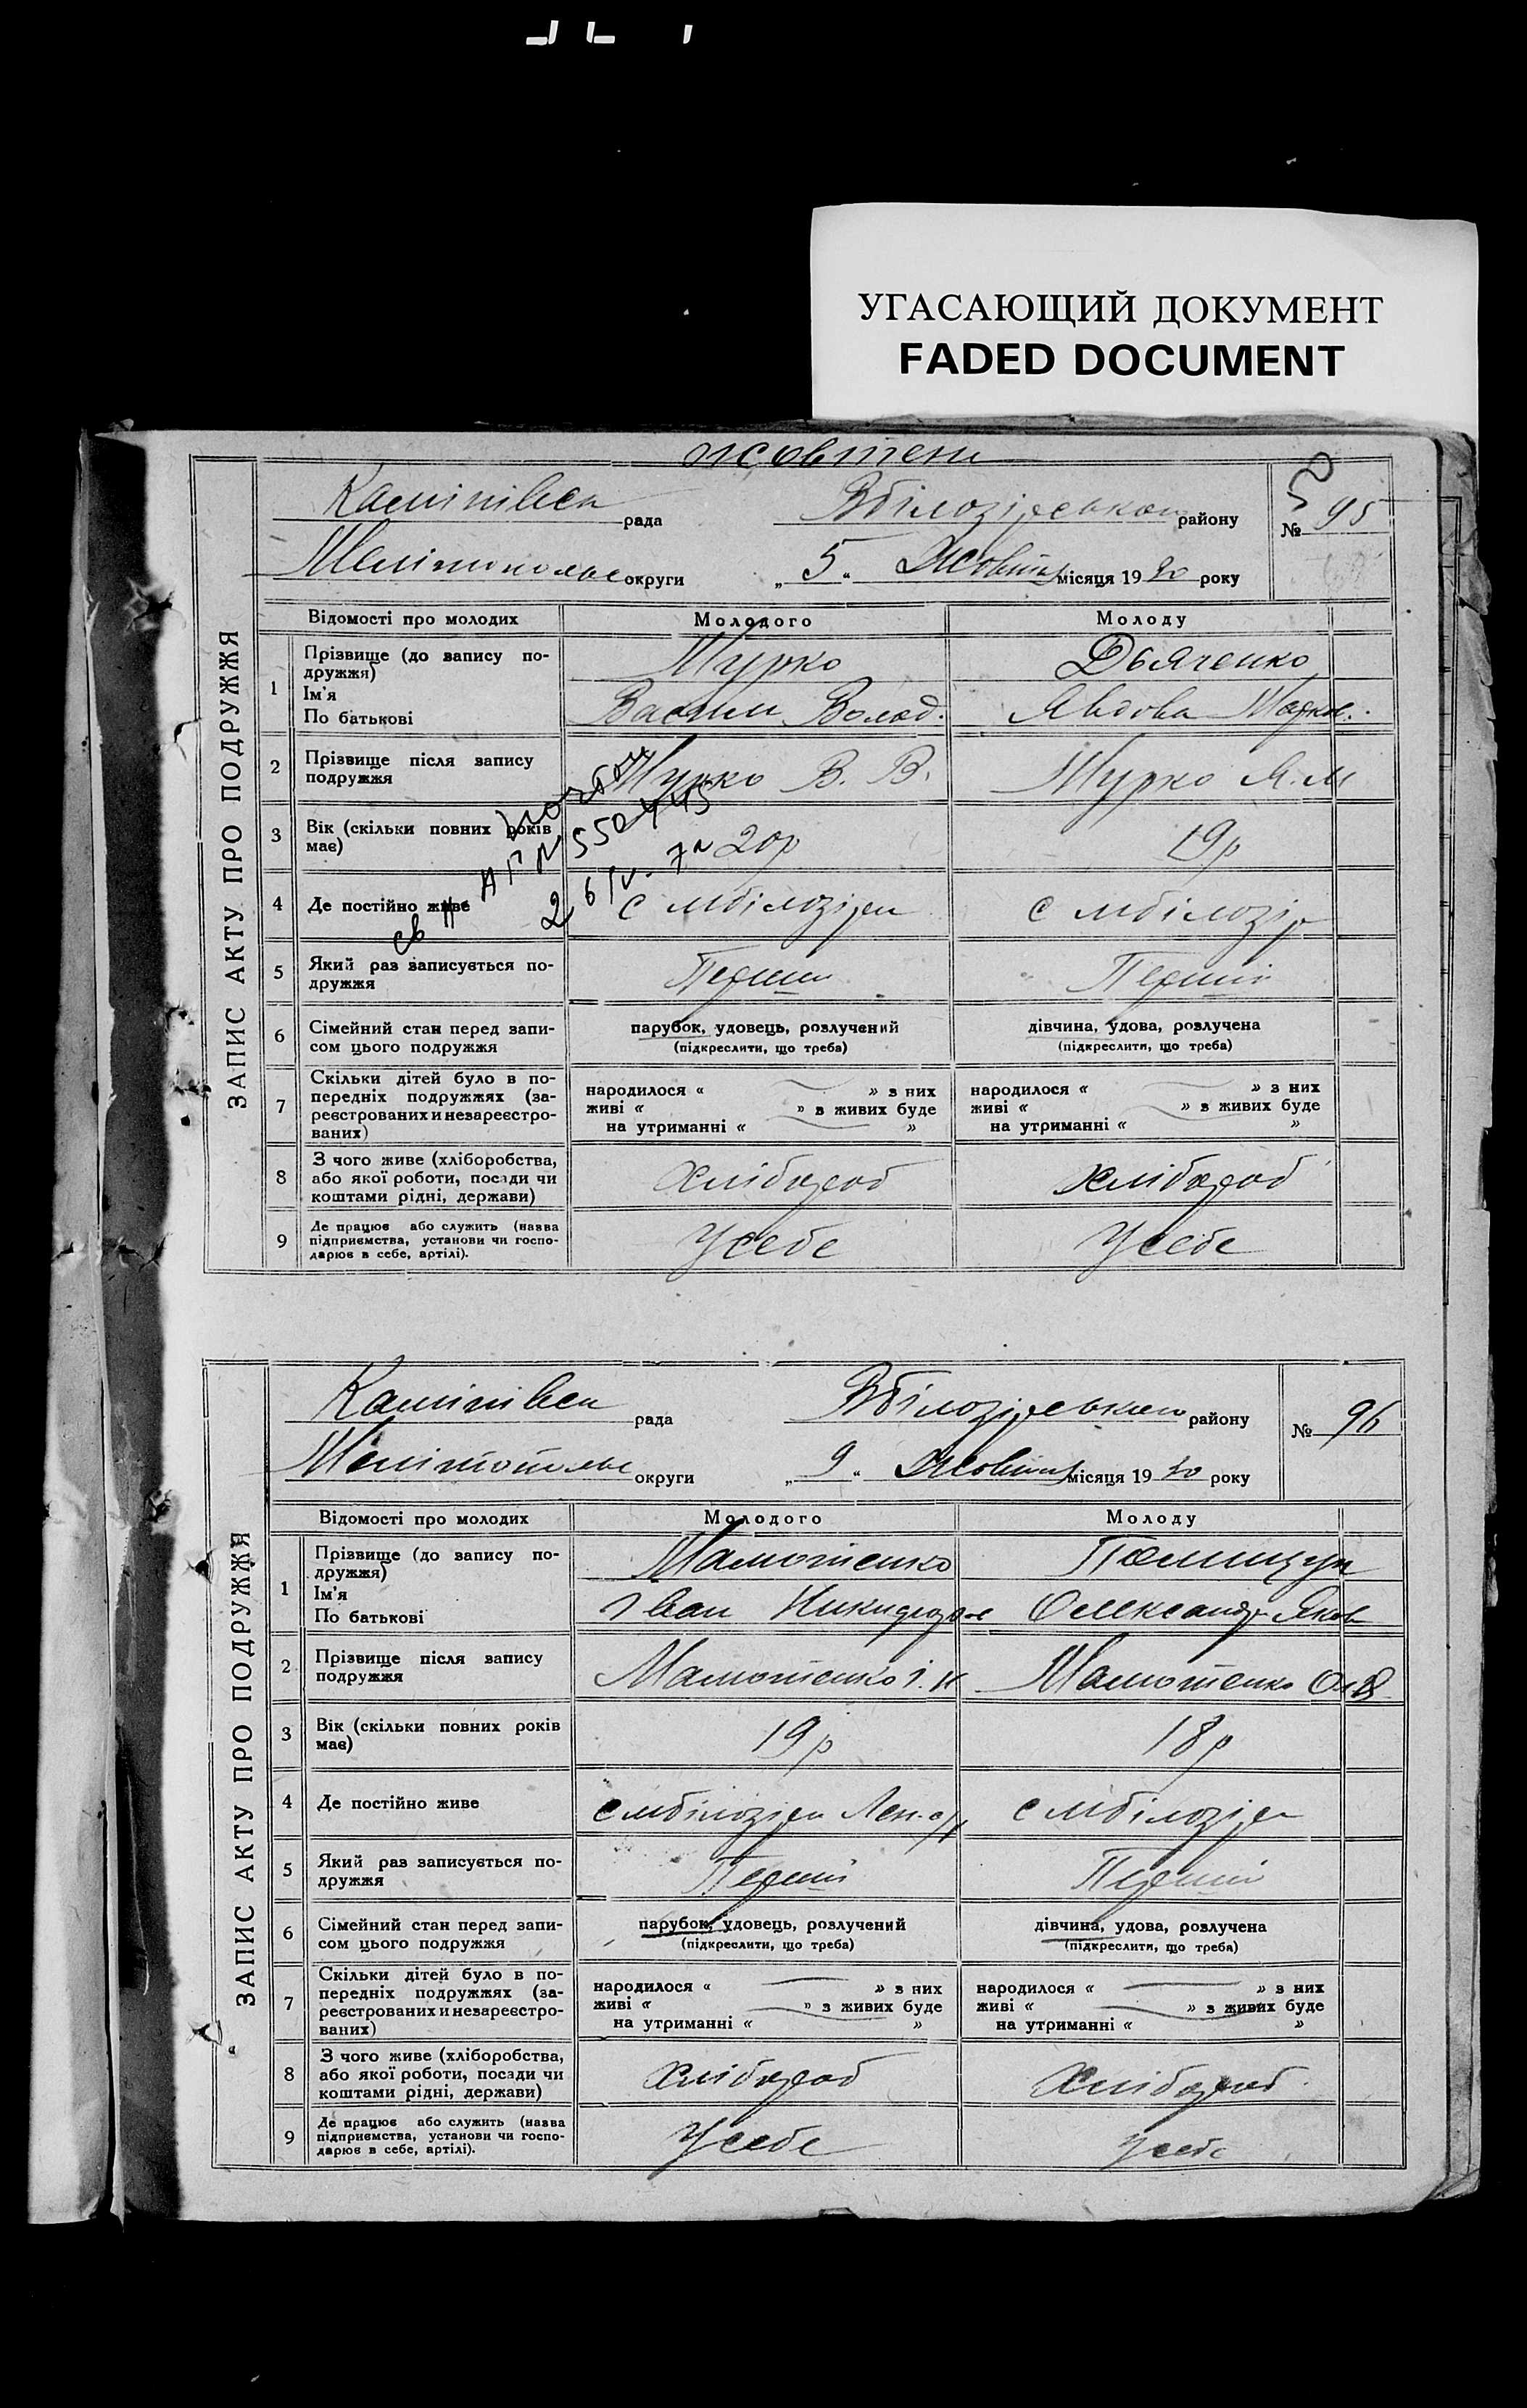 УГАСАЮЩИЙ ДОКУМЕНТ
FADED DOCUMENT
жовтень
ЗАПИС АКТУ ПРО ПОДРУЖЖЯ
рада
району
№ 95
округи
„ 5 “ місяця 19 30 року
Відомості про молодих
Молодого
Молоду
1
Прізвище (до запису по-
дружжя)
Ім'я
По батькові
Мурко
Дьяченко
Васили Волод.
Явдоха
2
Прізвище після запису
подружжя
Мурко В. В.
Мурко Я. М
3
Вік (скільки повних років
має)
20р
19р
4
Де постійно живе
с мбілозірки
с мбілозір
5
Який раз записується по-
дружжя
Перший
Перший
6
Сімейний стан перед запи-
сом цього подружжя
парубок, удовець, розлучений
(підкреслити, що треба)
дівчина, удова, розлучена
(підкреслити, що треба)
7
Скільки дітей було в по-
передніх подружжях (за-
реєстрованих и незареєстро-
ваних)
народилося « » з них
живі « » з живих буде
на утриманні « »
народилося « » з них
живі « » з живих буде
на утриманні « »
8
З чого живе (хліборобства,
або якої роботи, посади чи
коштами рідні, держави)
Хлібороб
Хлібороб
9
Де працює або служить (назва
підприємства, установи чи госпо-
дарює в себе, артілі).
Усебе
Усебе
ЗАПИС АКТУ ПРО ПОДРУЖЖЯ
рада
району
№ 96
округи
„ 9 “ місяця 19 30 року
Відомості про молодих
Молодого
Молоду
1
Прізвище (до запису по-
дружжя)
Ім'я
По батькові
Мамотенко
Іван Никифоров
Олександр Яков
2
Прізвище після запису
подружжя
Мамотенко І. Н
Мамотенко
3
Вік (скільки повних років
має)
19р
18р
4
Де постійно живе
с мбілозірки
с мбілозірк
5
Який раз записується по-
дружжя
Перший
Перший
6
Сімейний стан перед запи-
сом цього подружжя
парубок, удовець, розлучений
(підкреслити, що треба)
дівчина, удова, розлучена
(підкреслити, що треба)
7
Скільки дітей було в по-
передніх подружжях (за-
реєстрованих и незареєстро-
ваних)
народилося « » з них
живі « » з живих буде
на утриманні « »
народилося « » з них
живі « » з живих буде
на утриманні « »
8
З чого живе (хліборобства,
або якої роботи, посади чи
коштами рідні, держави)
Хлібороб
Хлібороб
9
Де працює або служить (назва
підприємства, установи чи госпо-
дарює в себе, артілі).
Усебе
Усебе